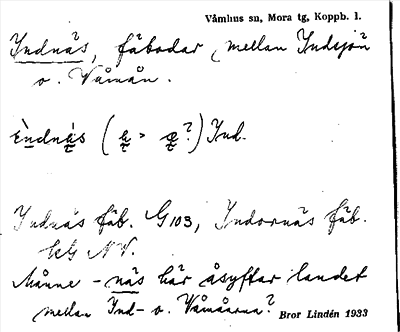 Våmhus sn, Mora tg, Koppb. l.
Indnäs, fäbodar, mellan Indsjön
o. Våmån.
Èndnès (e > æ?) Ind.
Indnäs fäb. G103, Indornäs fäb.
ktG NV.
Månne -näs här åsyftar landet
mellan Ind- o. Våmåarna?
Bror Lindén 1933